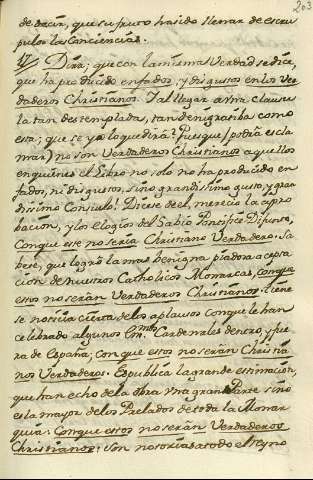 203
de decir, que su fruto ha sido llenar de escru
pulos las Conciencias.
17// Dirà; que con la misma Verdad se dice,
que ha producido enfados, y disgustos en los Ver
daderos Christianos. Y al llegar a Una clausu
la tan destemplada, tan denigratiba como
esta; que se yo lo que dirà? Pues que (podria escla
mar) no son Verdaderos Christianos aquellos
en quienes el Libro no solo no ha producido en
fados, ni disgustos, sino grandissimo gusto, y gran
dissimo Consuelo! Dicese de el, mereciò la apro
bacion, y los elogios del Sabio Pontifice Difunto,
Conque este no serìa Christiano Verdadero. Sa
bese, que logrò la mas benigna piadosa acepta
cion de nuestros Catholicos Monarcas, conque
estos no seràn Verdaderos Christianos. Tiene
se noticia cierta de los aplausos con que le han
celebrado algunos Cardenales dentro, y fue
ra de España; con que estos no seràn Christia
nos Verdaderos. Es publica la grande estimacion,
que han echo de la obra Una gran Parte sino
es la mayor de los Prelados de toda la Monar
quia: Conque estos no seràn Verdaderos
Christianos: Son notorias a todo el Reyno